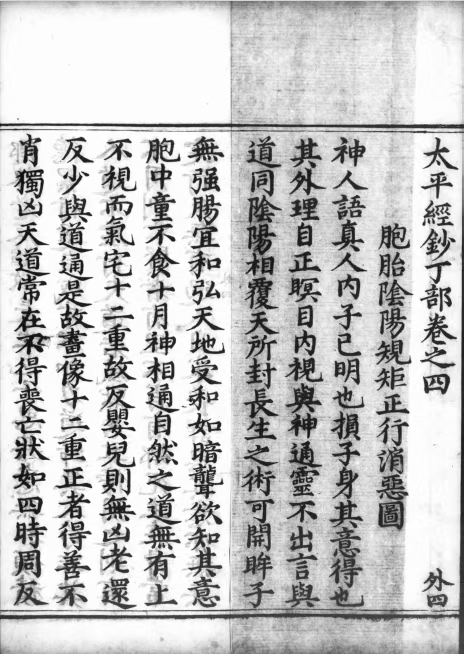 太平經鈔丁部卷之四
外四
胞胎陰陽規矩正行消惡圖
神人語真人内子已明也損子身其意得也
其外理自正瞑目内視與神通靈不出言與
道同陰陽相覆天所封長生之術可開眸子
無强腸宜和弘天地受和如暗聾欲知其意
胞中童不食十月神相通自然之道無有上
不視而氣宅十二重故反嬰兒則無凶老還
反少與道通是故畫像十二重正者得善不
肖獨凶天道常在不得喪亡狀如四時周反